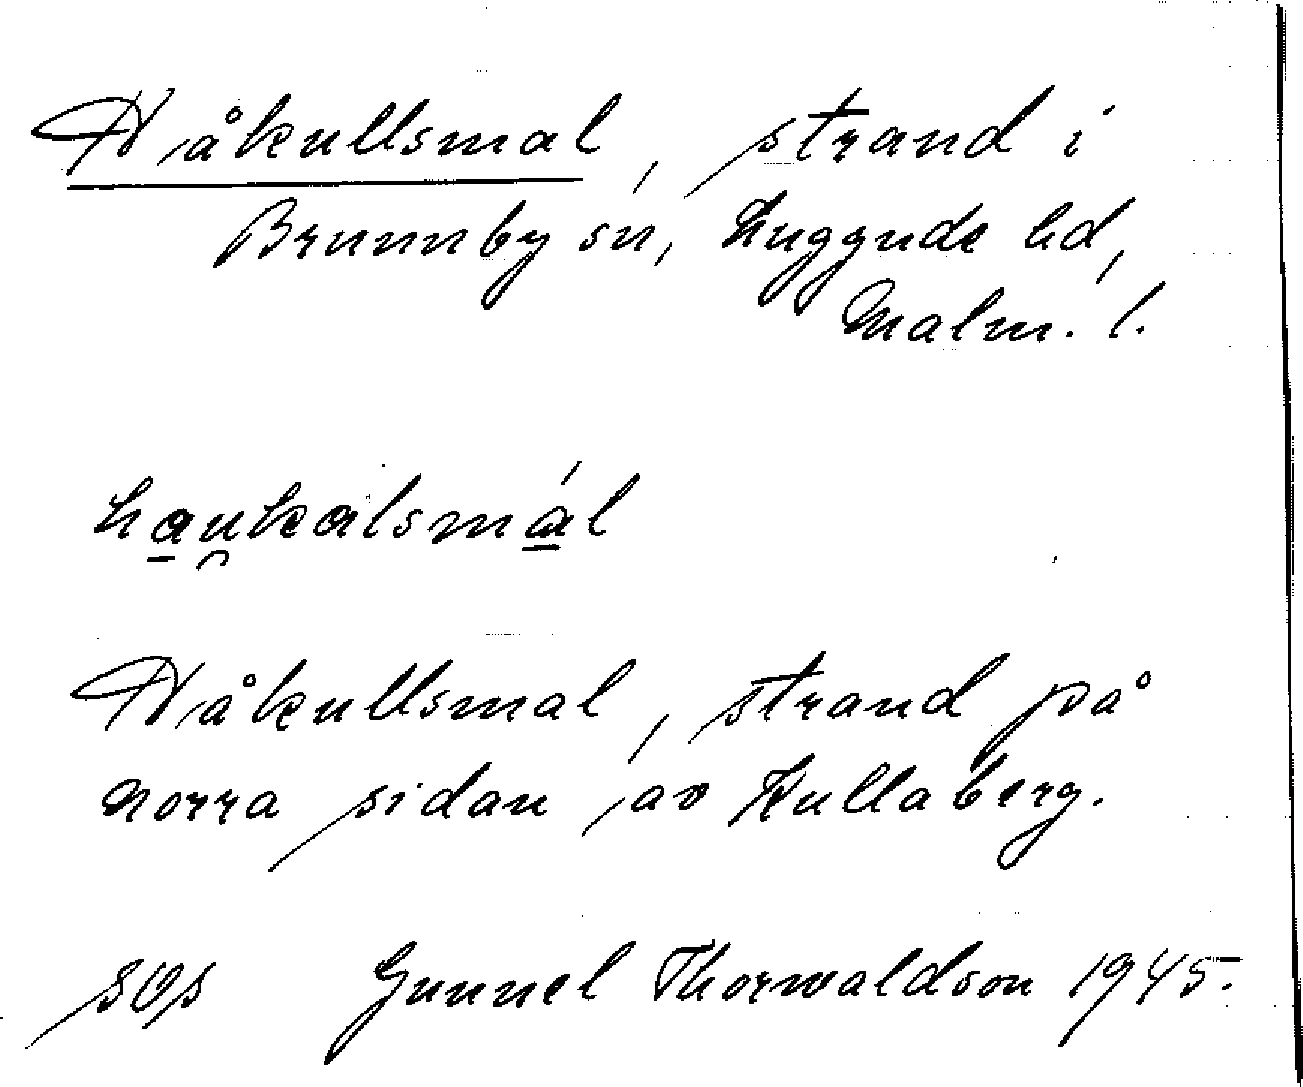 Håkullsmal, strand i
Brunnby sn, Luggude hd,
Malm. l.
ha̱u̯kalsmá̱l
Håkullsmal, strand på
norra sidan av Kullaberg.
Gunnel Thorwaldson 1945.